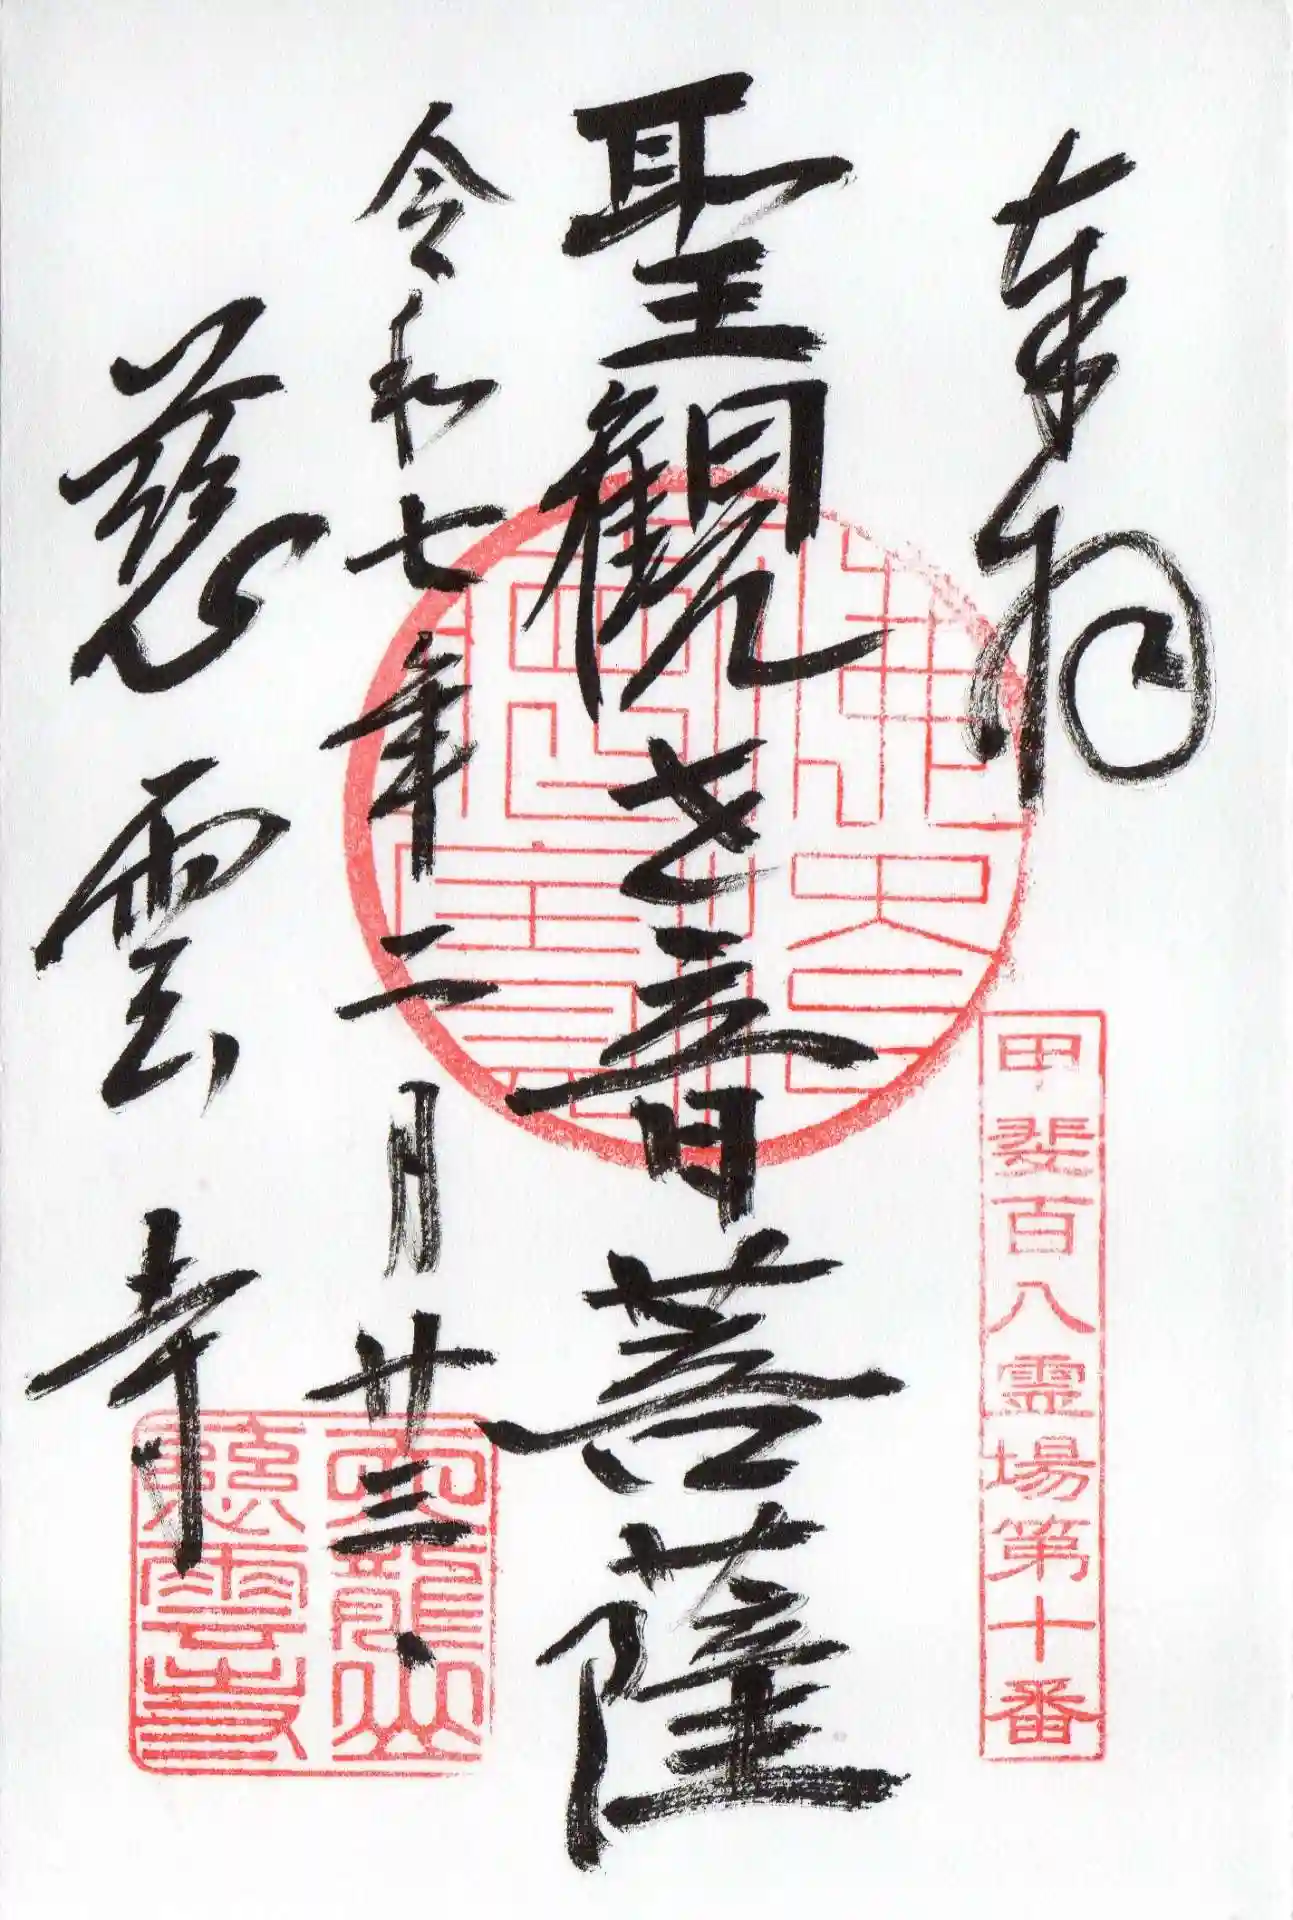 奉拝
甲斐百八霊場第十番
聖観世音菩薩
令和七年二月廿三、
慈雲寺
天龍山
慈雲寺